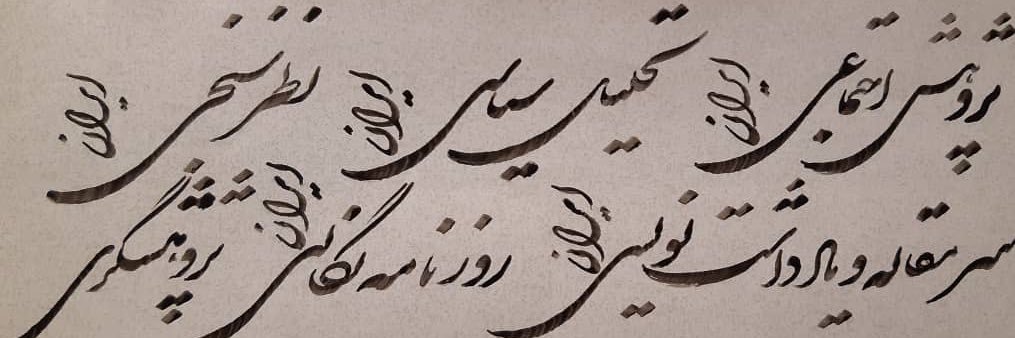 پژوهش اجتماعی ایران تحلیل سیاسی ایران نظرسنجی ایران
سرمقاله و یادداشت نویسی ایران روزنامه نگاری ایران پژوهشگری